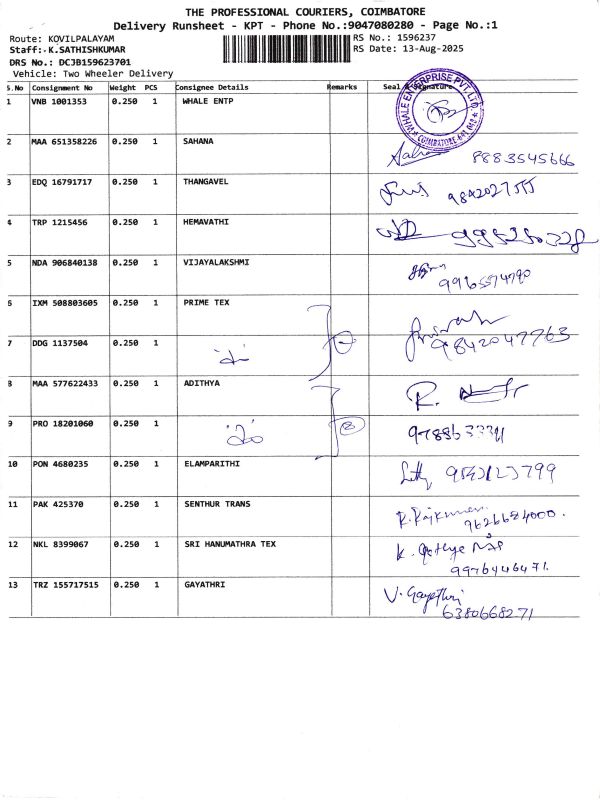 THE PROFESSIONAL COURIERS, COIMBATORE
Delivery Runsheet - KPT - Phone No.:9047080280 - Page No.:1
Route: KOVILPALAYAM RS No.: 1596237
Staff: K.SATHISHKUMAR RS Date: 13-Aug-2025
DRS No.: DCJB159623701
Vehicle: Two Wheeler Delivery
S.No Consignment No Weight PCS Consignee Details Remarks Seal & Signature
1 VNB 1001353 0.250 1 WHALE ENTP
WHALE ENTERPRISE PVT. LTD COIMBATORE
2 MAA 651358226 0.250 1 SAHANA
8883545666
3 EDQ 16791717 0.250 1 THANGAVEL
4 TRP 1215456 0.250 1 HEMAVATHI
5 NDA 906840138 0.250 1 VIJAYALAKSHMI
6 IXM 508803605 0.250 1 PRIME TEX
7 DDG 1137504 0.250 1
9842047763
8 MAA 577622433 0.250 1 ADITHYA
R.
9 PRO 18201060 0.250 1
10 PON 4680235 0.250 1 ELAMPARITHI
11 PAK 425370 0.250 1 SENTHUR TRANS
R. Rajkumar
12 NKL 8399067 0.250 1 SRI HANUMATHRA TEX
K.
9976446471.
13 TRZ 155717515 0.250 1 GAYATHRI
V. Gayathri
6380668271